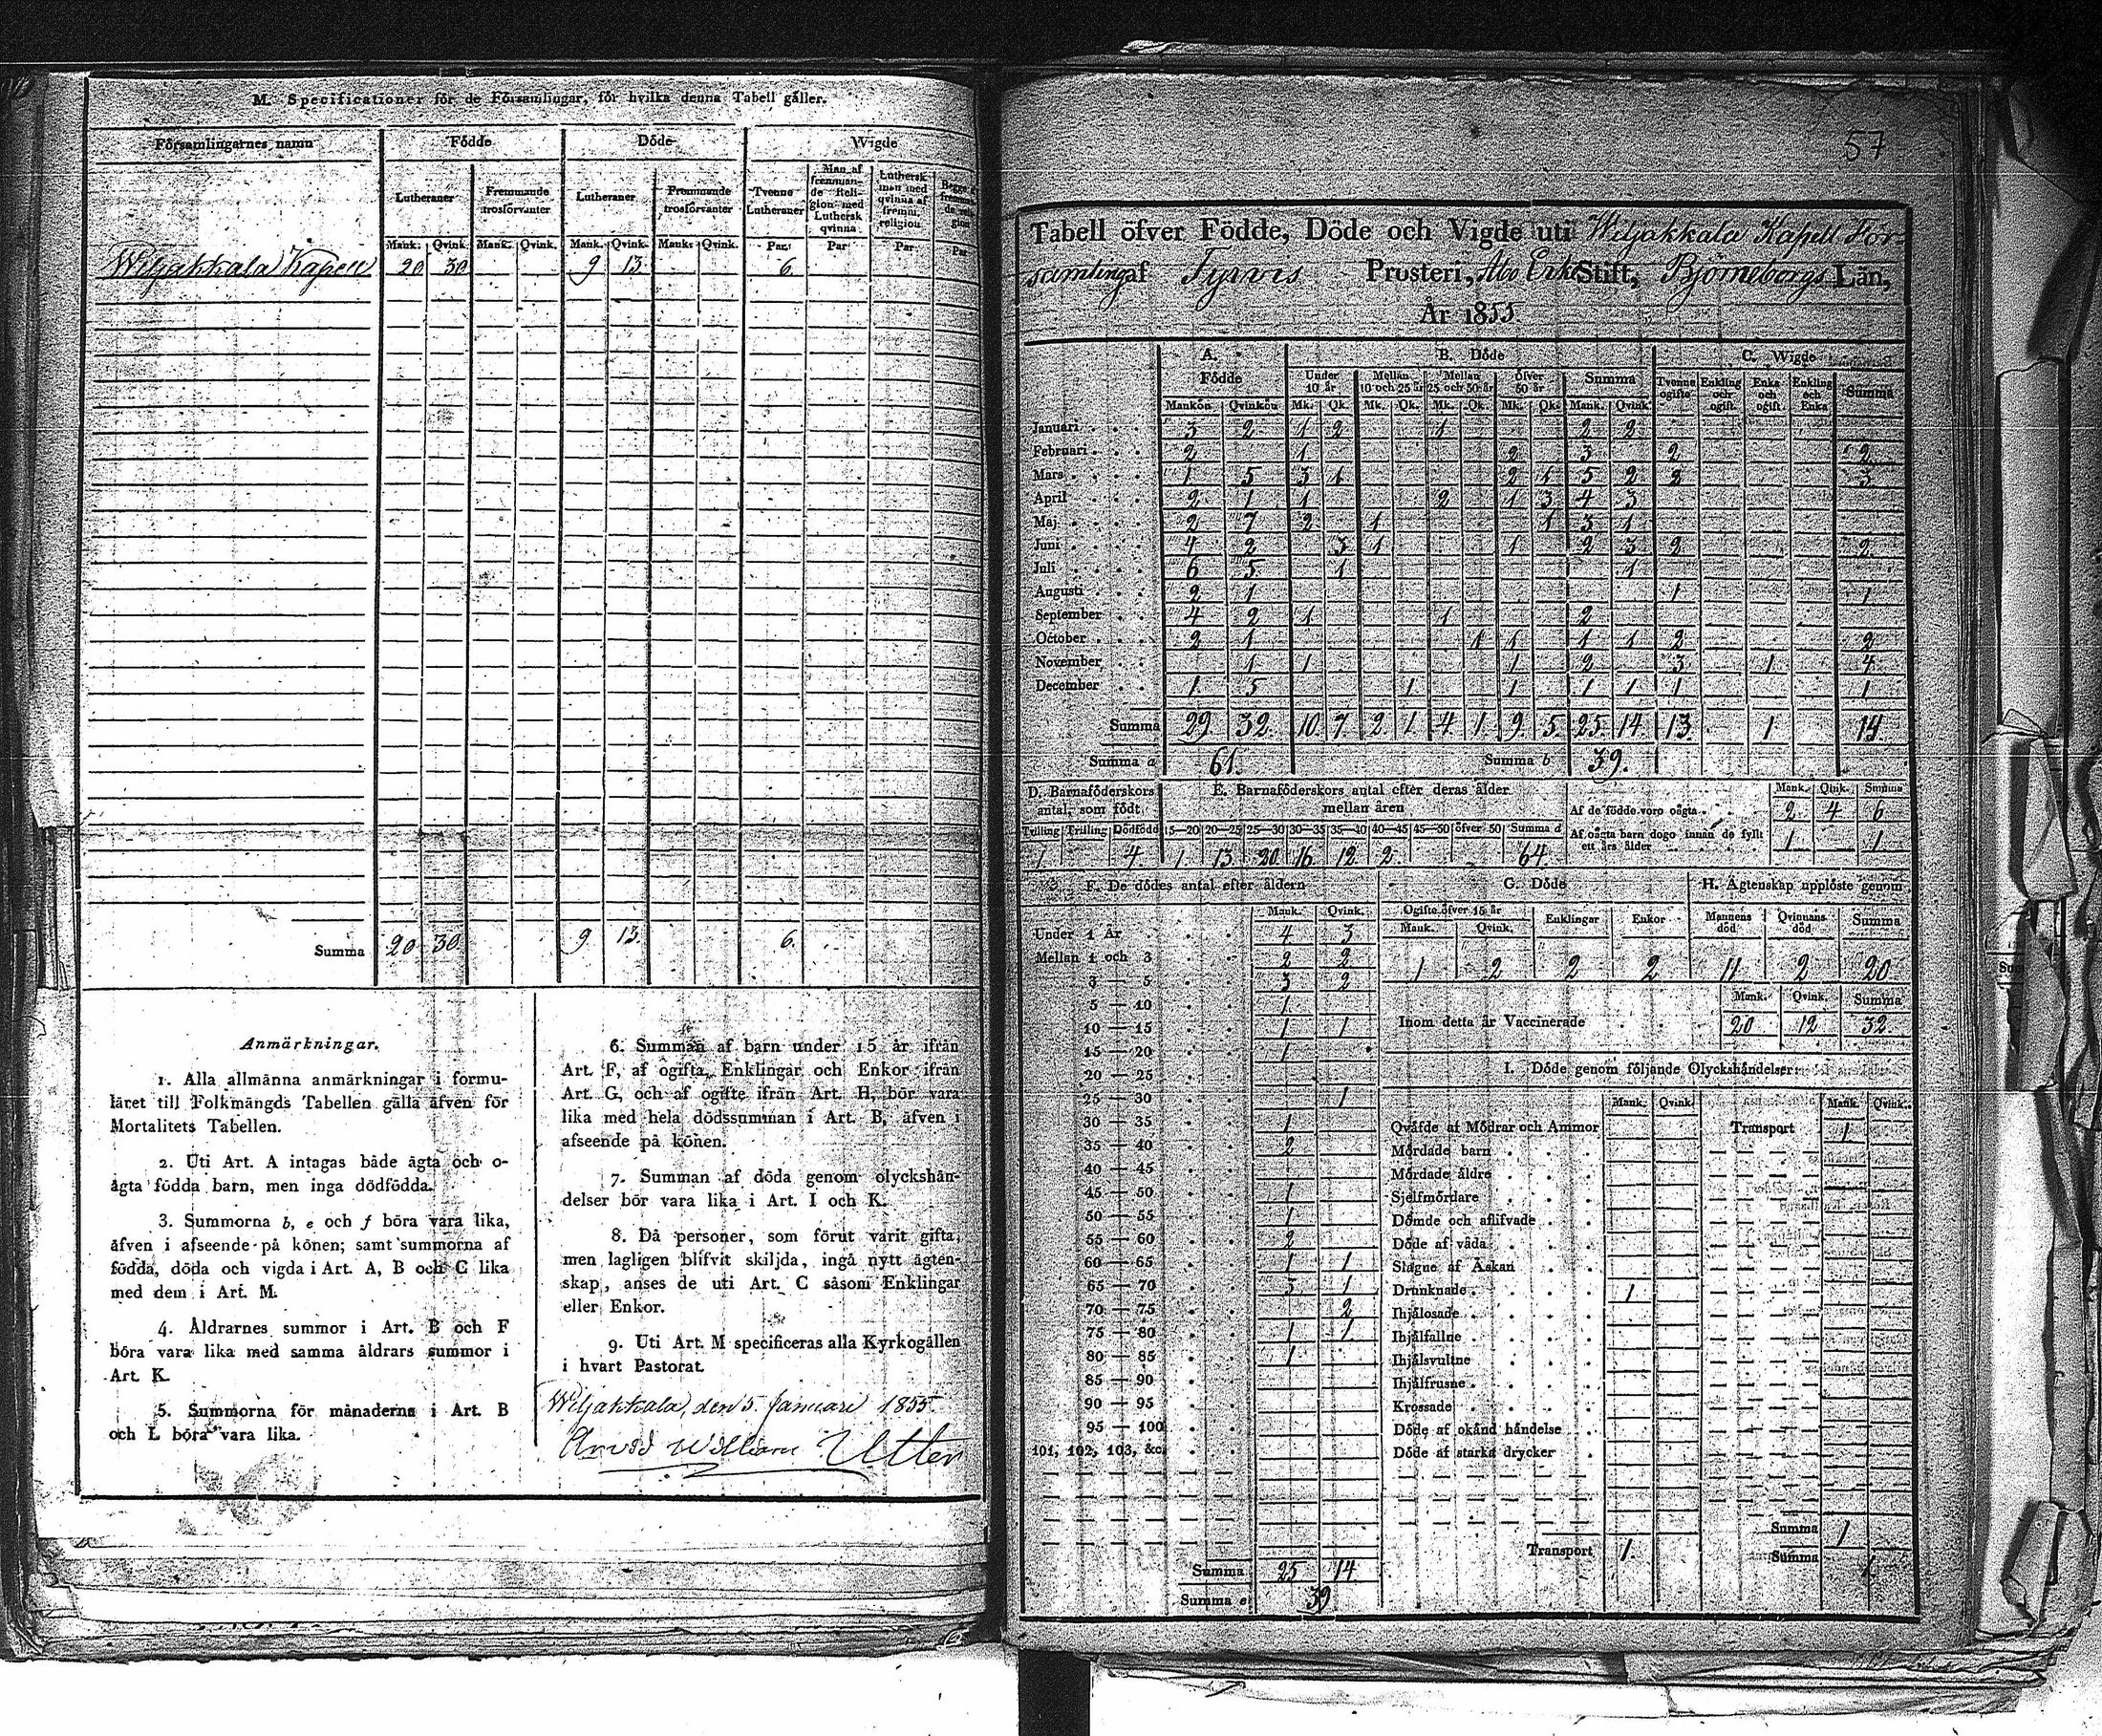 M. Specificationer för de Församlingar, för hvilka denna Tabell gäller.
Församlingarnes namn Födde Döde Wigde
Lutheraner Fremmande trosförvanter Lutheraner Fremmande trosförvanter Tvenne Lutheraner Man af fremmande Religion med Luthersk qvinna Luthersk man med qvinna af fremm. religion
Mank. Qvink. Mank. Qvink. Mank. Qvink. Mank. Qvink. Par. Par Par Par
Wiljakkala Kapell 20 30 9 13 6
Summa 20 30 9 13 6.
Anmärkningar.
1. Alla allmänna anmärkningar i formu-
läret till Folkmängds Tabellen gälla äfven för
Mortalitets Tabellen.
2. Uti Art. A intagas både ägta och o-
ägta födda barn, men inga dödfödda.
3. Summorna b, e och f böra vara lika,
äfven i afseende på könen; samt summorna af
födda, döda och vigda i Art. A, B och C lika
med dem i Art. M.
4. Åldrarnes summor i Art. B och F
böra vara lika med samma åldrars summor i
Art. K.
5. Summorna för månaderna i Art. B
och L böra vara lika.
6. Summan af barn under 15 år ifrån
Art. F, af ogifta, Enklingar och Enkor ifrån
Art. G, och af ogifte ifrån Art. H, bör vara
lika med hela dödssumman i Art. B, äfven i
afseende på könen.
7. Summan af döda genom olyckshän-
delser bör vara lika i Art. I och K.
8. Då personer, som förut varit gifta,
men lagligen blifvit skiljda, ingå nytt ägten-
skap, anses de uti Art. C såsom Enklingar
eller Enkor.
9. Uti Art. M specificeras alla Kyrkogällen
i hvart Pastorat.
Wiljakkala, den 5. Januari 1855.
Arvid William Utter
57
Tabell öfver Födde, Döde och Vigde uti Wiljakkala Kapell För-
samling af Tyrvis Prosteri, Åbo Erke Stift, Björneborgs Län,
År 1855
A. Födde B. Döde C. Wigde
Under 10 år Mellan 10 och 25 år Mellan 25 och 50 år Öfver 50 år Summa Tvenne ogifte Enkling och ogift Enka och ogift Enkling och Enka Summa
Mankön Qvinkön Mk. Qk. Mk. Qk. Mk. Qk. Mk. Qk. Mank. Qvink.
Januari 3 2 1 2 1 2 2
Februari 2 1 2 3 2 2
Mars 1 5 3 1 2 1 5 2 2 3
April 2 1 1 2 1 3 4 3
Maj 2 7 2 1 1 3 1
Juni 4 2 3 1 1 2 3 2 2
Juli 6 5 1 1
Augusti 2 1 1 1
September 4 2 1 1 2
October 2 1 1 1 1 1 2 2
November 1 1 1 2 3 1 4
December 1 5 1 1 1 1 1 1
Summa 29 32 10 7 2 1 4 1 9 5 25 14 13 1 14
Summa a 61. Summa b 39.
D. Barnaföderskors antal, som födt E. Barnaföderskors antal efter deras ålder mellan åren
Tvilling Trilling Dödfödd 15—20 20—25 25—30 30—35 35—40 40—45 45—50 öfver 50 Summa d
1 4 1 13 20 16 12 2 64
Mank. Qvik. Summa
Af de födde voro oägta 2 4 6
Af oägta barn dogo innan de fyllt ett års ålder 1 1
F. De dödes antal efter åldern
Mank. Qvink.
Under 1 År 4 3
Mellan 1 och 3 2 2
3 — 5 3 2
5 — 10 1
10 — 15 1 1
15 — 20 1
20 — 25
25 — 30 1
30 — 35 1
35 — 40 2
40 — 45
45 — 50 1
50 — 55 1
55 — 60 2
60 — 65 1 1
65 — 70 3 1
70 — 75 2
75 — 80 1 1
80 — 85 1
85 — 90
90 — 95
95 — 100
101, 102, 103, &c.
Summa 25 14
Summa e 39
G. Döde H. Ägtenskap upplöste genom
Ogifte öfver 15 år Enklingar Enkor Mannens död Qvinnans död Summa
Mank. Qvink.
1 2 2 2 11 2 20
Mank. Qvink. Summa
Inom detta år Vaccinerade 20 12 32
I. Döde genom följande Olyckshändelser:
Mank. Qvink. Mank. Qvink.
Qväfde af Mödrar och Ammor Transport 1
Mördade barn
Mördade äldre
Sjelfmördare
Dömde och aflifvade
Döde af våda
Slagne af Åskan
Drunknade 1
Ihjälosade
Ihjälfallne
Ihjälsvultne
Ihjälfrusne
Krossade
Döde af okänd händelse
Döde af starka drycker
Summa 1
Transport 1. Summa 1